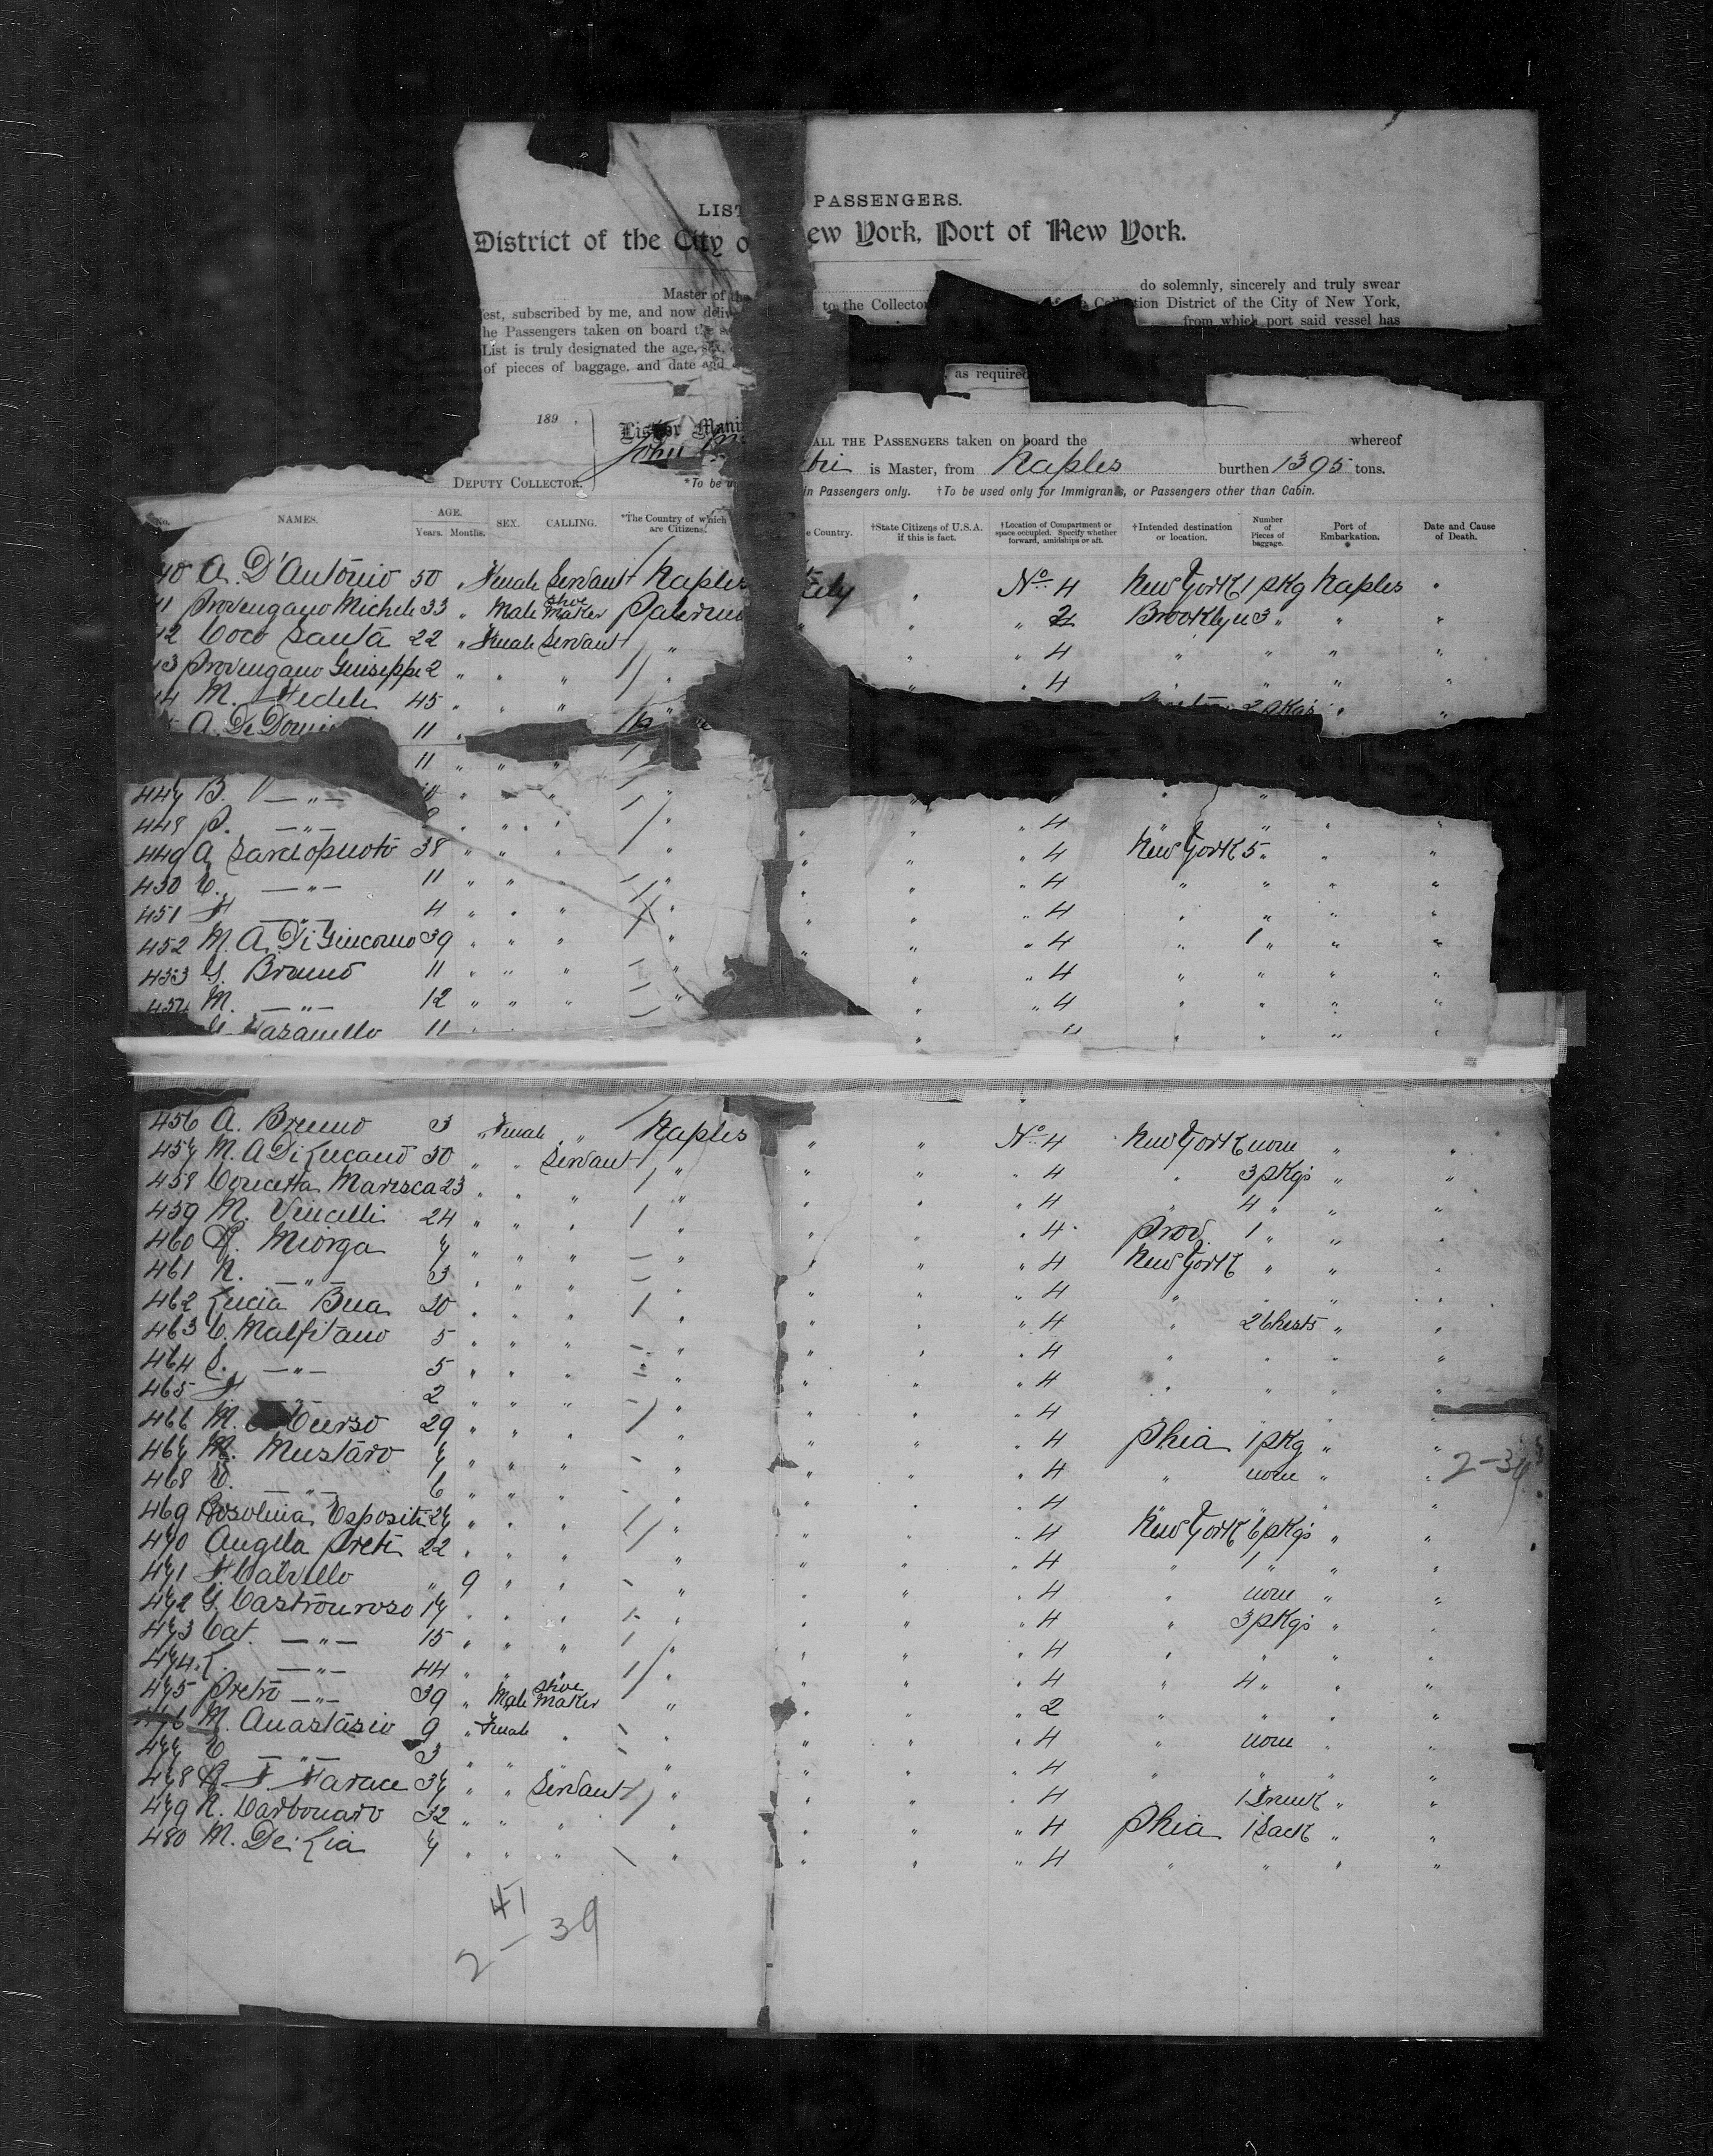 LIST PASSENGERS.
District of the City o ew York, Port of New York.
do solemnly, sincerely and truly swear
Master of the to the Collector Collection District of the City of New York,
est, subscribed by me, and now deliv from which port said vessel has
he Passengers taken on board the
List is truly designated the age, sex,
of pieces of baggage, and date and as required
189 .
List or Mani ALL THE PASSENGERS taken on board the whereof
John is Master, from Naples burthen 1395 tons.
DEPUTY COLLECTOR.
*To be u in Passengers only. †To be used only for Immigrants, or Passengers other than Cabin.
No. NAMES. AGE. Years. Months. SEX. CALLING. *The Country of which are Citizens. e Country. †State Citizens of U.S.A. if this is fact. †Location of Compartment or space occupied. Specify whether forward, amidships or aft. †Intended destination or location. Number of Pieces of baggage. Port of Embarkation. Date and Cause of Death.
40 A. D'Antonio 50 " Female Servant Naples Italy " No 4 New York 1 pKg Naples "
41 Provengano Michele 33 " Male Shoe Maker Palermo " " " 2 Brooklyn 3 " " "
42 Coco Santa 22 " Female Servant " " " 4 " " " "
43 Provengano Guiseppe 2 " " " " " " 4 " " " "
44 M. Fedele 45 " " " 2 pKgs " "
A. De Domi 11 "
11 " " " "
447 B. — " — 10 " " " "
448 P. — " — " " " " " " " 4 " " " "
449 A Sardopuoto 38 " " " " " " " 4 New York 5 " " "
450 C. — " — 11 " " " " " " " 4 " " " "
451 F — " — 4 " " " " " " " 4 " " " "
452 M. A. Di Giacomo 39 " " " " " " " 4 " 1 " " "
453 G. Bruno 11 " " " " " " 4 " " " "
454 M. — " — 12 " " " " " 4 " " " "
11 " " " " "
456 A. Bruno 3 " Female " Naples " " No 4 New York none " "
457 M. A Di Lucano 50 " " Servant " " " " 4 " 3 pKgs " "
458 Concetta Maresca 23 " " " " " " " 4 " 4 " " "
459 M. Vincelli 24 " " " " " " " 4 Prov. 1 " " "
460 R. Miorga 7 " " " " " " " 4 New York " " "
461 N. — " — 3 " " " " " " " 4 " " " "
462 Lucia Bua 20 " " " " " " " 4 " 2 Chests " "
463 C. Malfitano 5 " " " " " " " 4 " " " "
464 S. — " — 5 " " " " " " " 4 " " " "
465 F — " — 2 " " " " " " " 4 " " " "
466 M. Curso 29 " " " " " " " 4 Phia 1 pKg " "
467 M. Mustaro 7 " " " " " " " 4 " none " " 2-34
468 C. — " — 6 " " " " " " " 4 " " " "
469 Rosolina Esposito 27 " " " " " " " 4 New York 6 pKgs " "
470 Angela Preti 22 " " " " " " " 4 " 1 " " "
471 F Calvello " 9 " " " " " 4 " none " "
472 G. Castronroso 17 " " " " " " " 4 " 3 pKgs " "
473 Cat. — " — 15 " " " " " " " 4 " " " "
474 L. — " — 44 " " " " " " " 4 " 4 " " "
475 Pietro — " — 39 " Male Shoe Maker " " " " 2 " " " "
476 M. Anastasio 9 " Female " " " " 4 " none " "
477 C — " — 3 " " " " " " " 4 " " " "
478 R. F. Farace 37 " " Servant " " " " 4 1 Trunk " "
479 N. Carbonaro 32 " " " " " " " 4 Phia 1 Sack " "
480 M. De Lia 7 " " " " " " " 4 " " " "
41
2 - 39